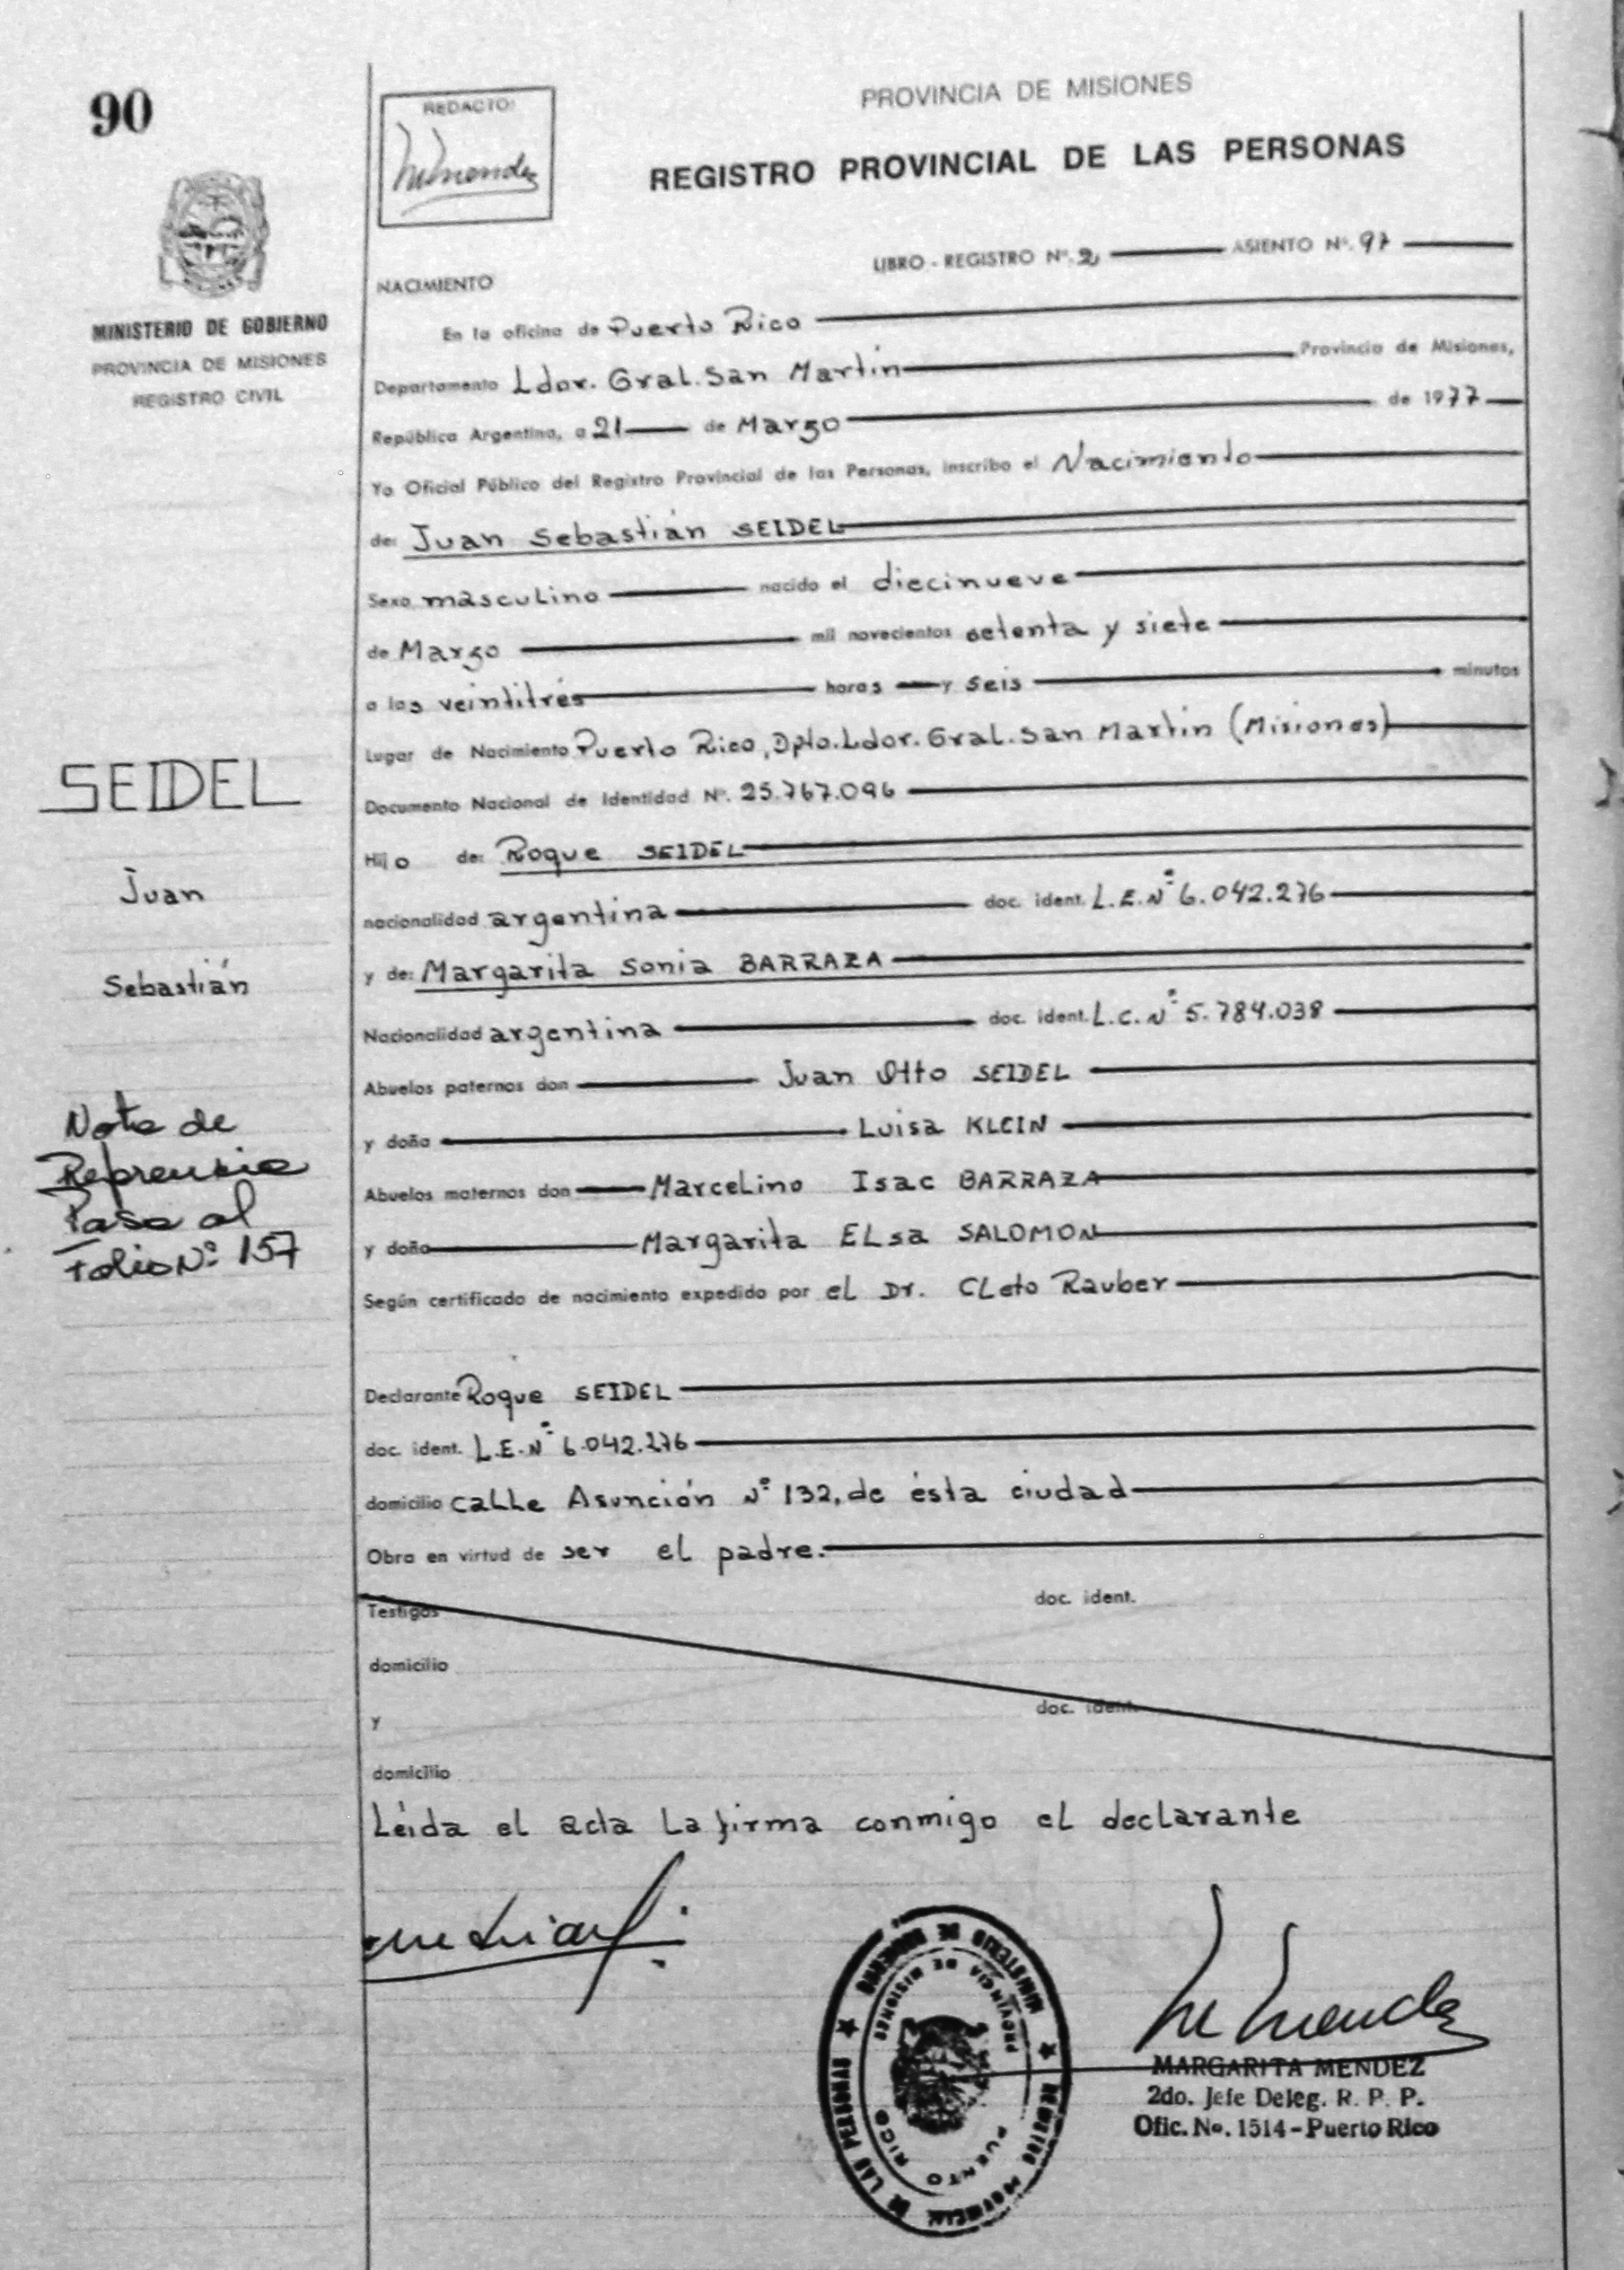 90
REDACTO:
MMendez
PROVINCIA DE MISIONES
REGISTRO PROVINCIAL DE LAS PERSONAS
LIBRO - REGISTRO Nº. 2 ASIENTO Nº. 97
MINISTERIO DE GOBIERNO
PROVINCIA DE MISIONES
REGISTRO CIVIL
NACIMIENTO
En la oficina de Puerto Rico
Departamento Ldor. Gral. San Martín Provincia de Misiones,
República Argentina, a 21 de Marzo de 1977
Yo Oficial Público del Registro Provincial de las Personas, inscribo el Nacimiento
de: Juan Sebastián SEIDEL
Sexo masculino nacido el diecinueve
de Marzo mil novecientos setenta y siete
a las veintitrés horas y seis minutos
Lugar de Nacimiento Puerto Rico, Dpto. Ldor. Gral. San Martín (Misiones)
Documento Nacional de Identidad Nº. 25.767.096
Hijo de: Roque SEIDEL
nacionalidad argentina doc. ident. L.E.Nº 6.042.276
y de: Margarita Sonia BARRAZA
Nacionalidad argentina doc. ident. L.C.Nº 5.784.038
Abuelos paternos don Juan Otto SEIDEL
y doña Luisa KLEIN
Abuelos maternos don Marcelino Isac BARRAZA
y doña Margarita Elsa SALOMON
Según certificado de nacimiento expedido por el Dr. Cleto Rauber
Declarante Roque SEIDEL
doc. ident. L.E.Nº 6.042.276
domicilio calle Asunción Nº 132, de ésta ciudad
Obra en virtud de ser el padre.
Testigos doc. ident.
domicilio
y doc. ident.
domicilio
Leída el acta la firma conmigo el declarante
SEIDEL
Juan
Sebastián
Nota de
Pase al
Folio Nº 157
MINISTERIO DE GOBIERNO
REGISTRO PROVINCIAL DE LAS PERSONAS
PROVINCIA DE MISIONES
PUERTO RICO
MMendez
MARGARITA MENDEZ
2do. Jefe Deleg. R. P. P.
Ofic. No. 1514 - Puerto Rico